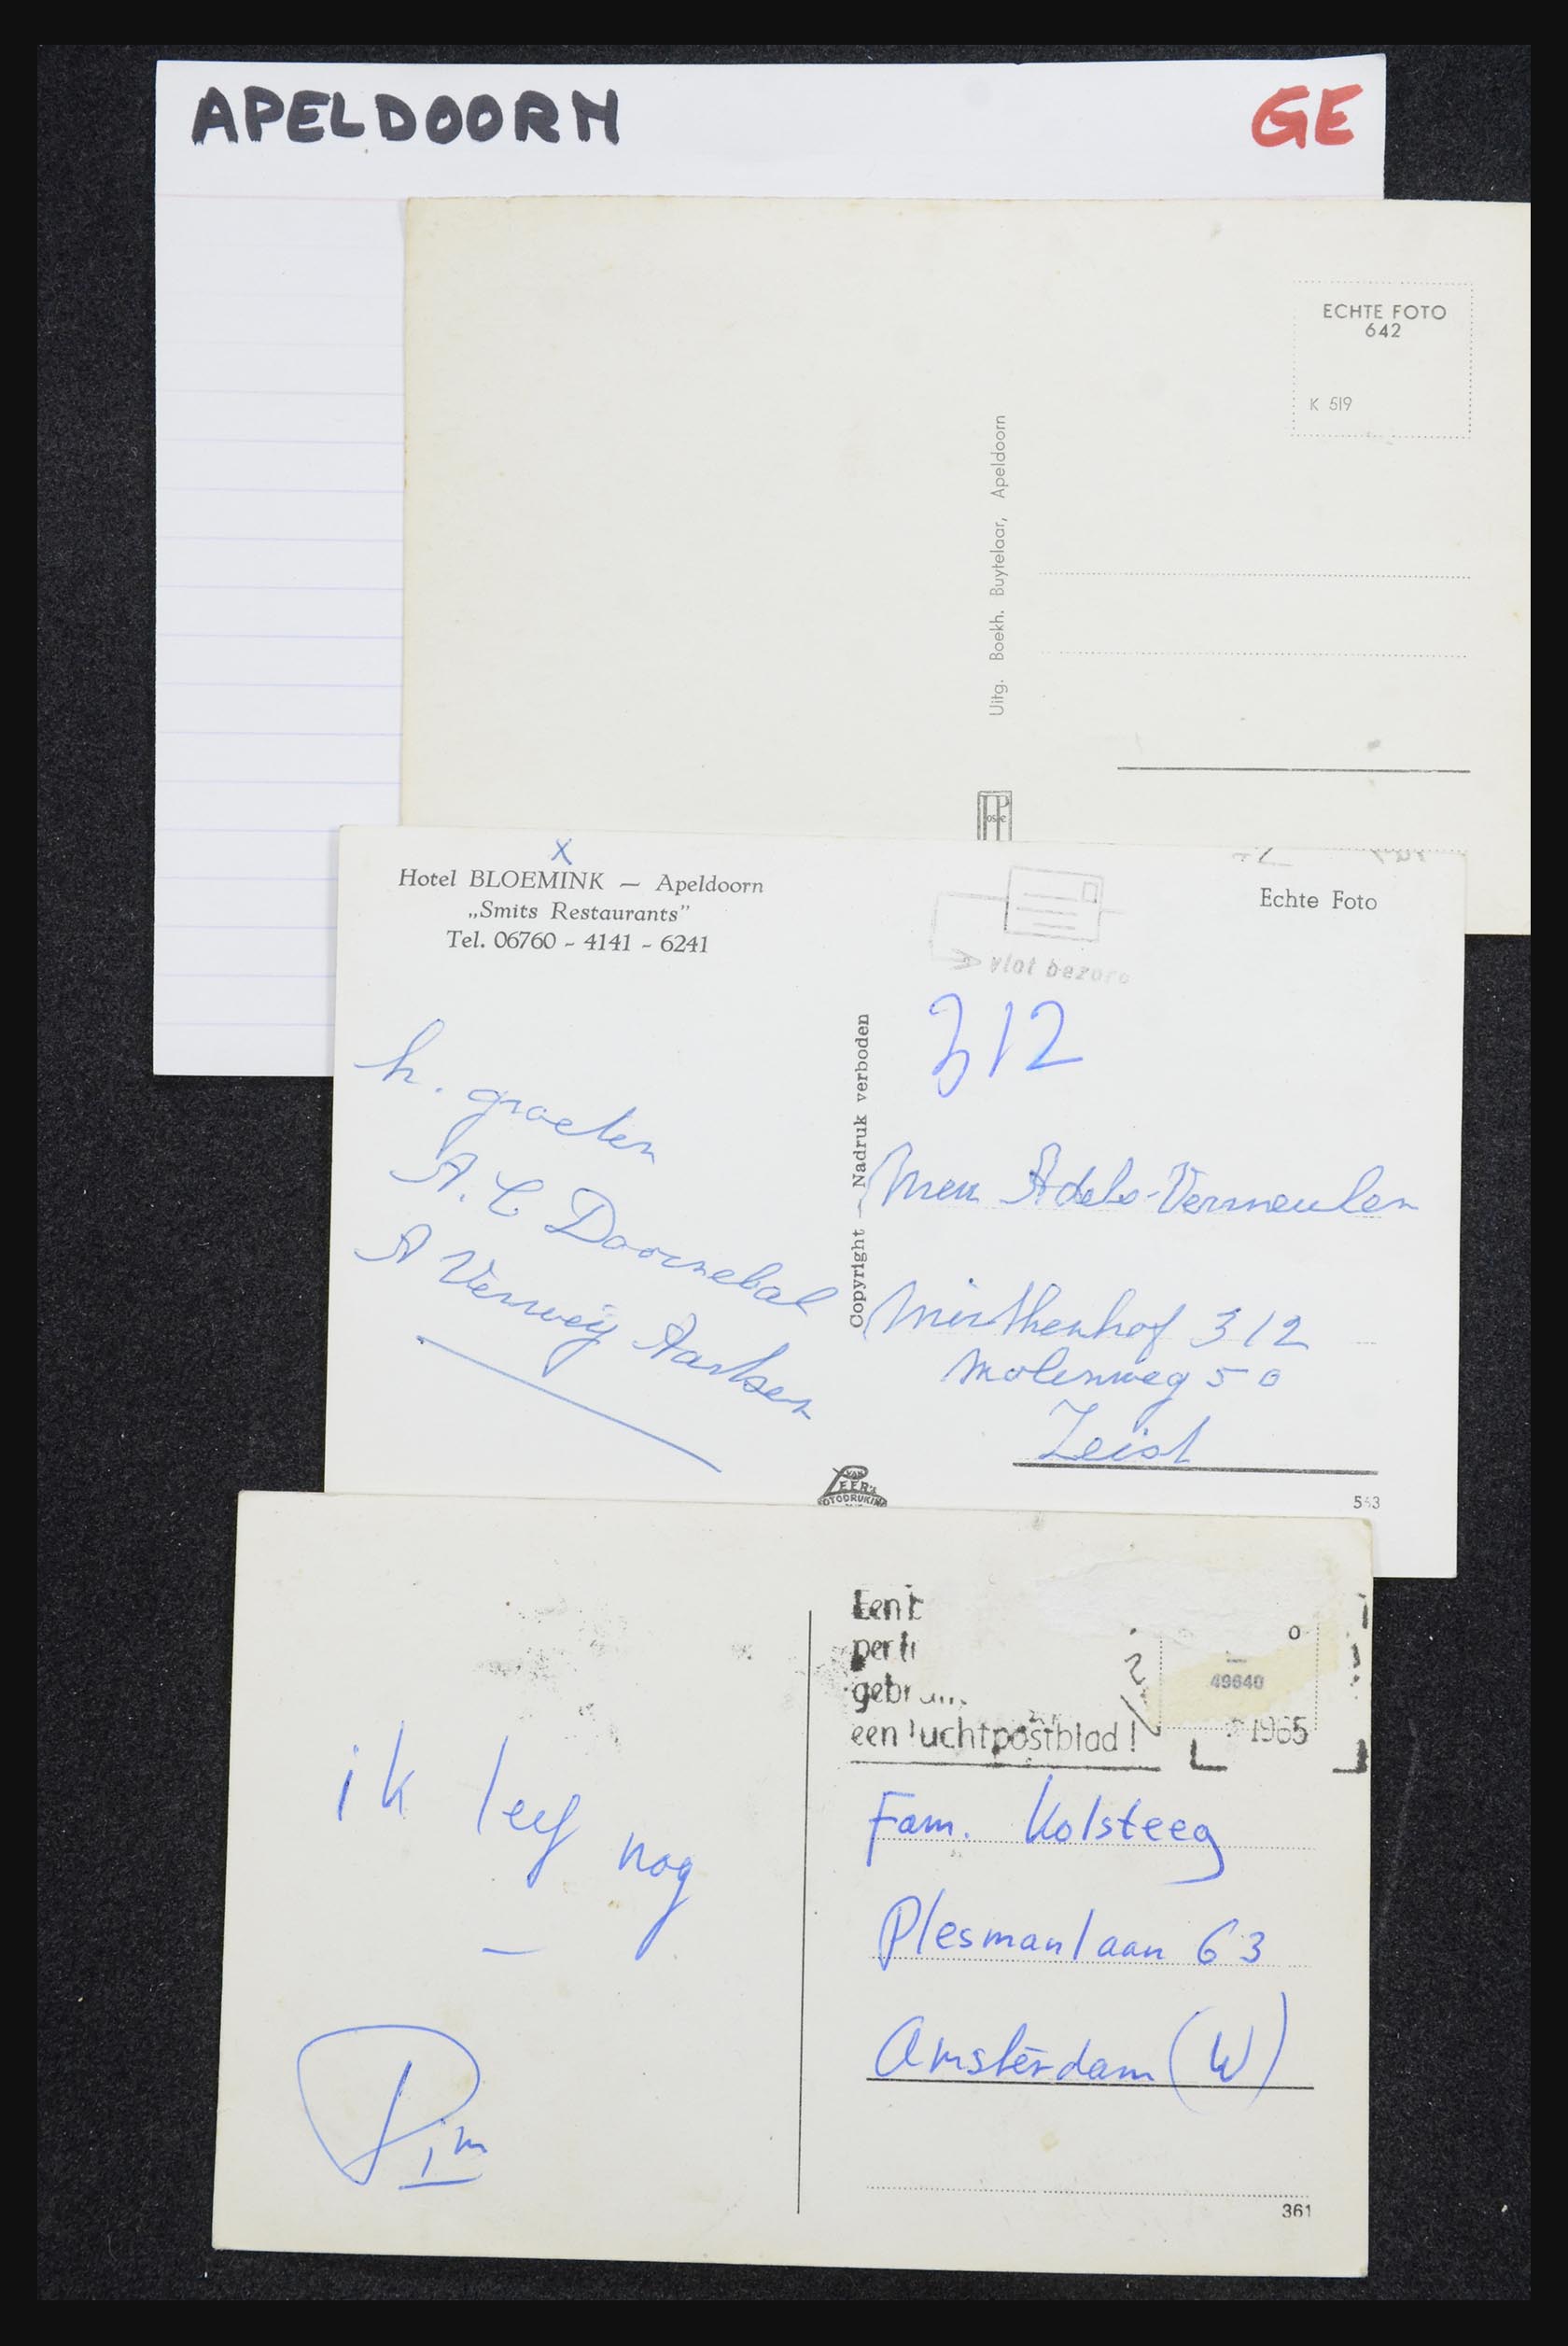 APELDOORN
GE
ECHTE FOTO
642
K 519
Uitg. Boekh. Buytelaar, Apeldoorn
x
Hotel BLOEMINK — Apeldoorn
„Smits Restaurants”
Tel. 06760 - 4141 - 6241
Echte Foto
vlot bezorg
312
h. groeten
A. C Doornebal
A Verweij Aartsen
Copyright — Nadruk verboden
Adels-Vermeulen
Mirthenhof 312
Molenweg 50
Zeist
VAN
LEER'S
FOTODRUKIN
Een b
per
gebr
een luchtpostblad!
49640
1965
ik leef nog
Pim
Fam. Kolsteeg
Plesmanlaan 63
Amsterdam (W)
361